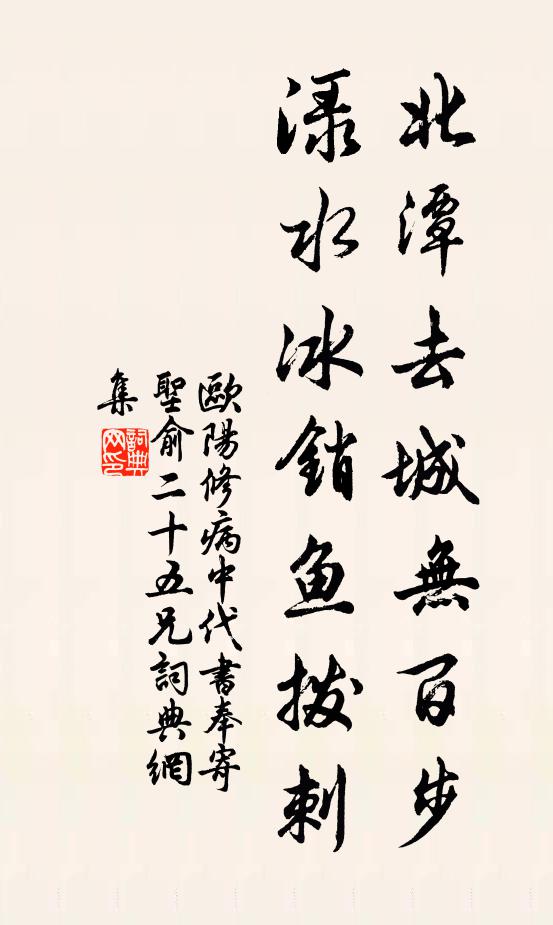 北潭去城無百步
渌水冰銷鱼撥剌
歐陽修病中代書奉寄
聖俞二十五兄詞典網
集
詞典
网印